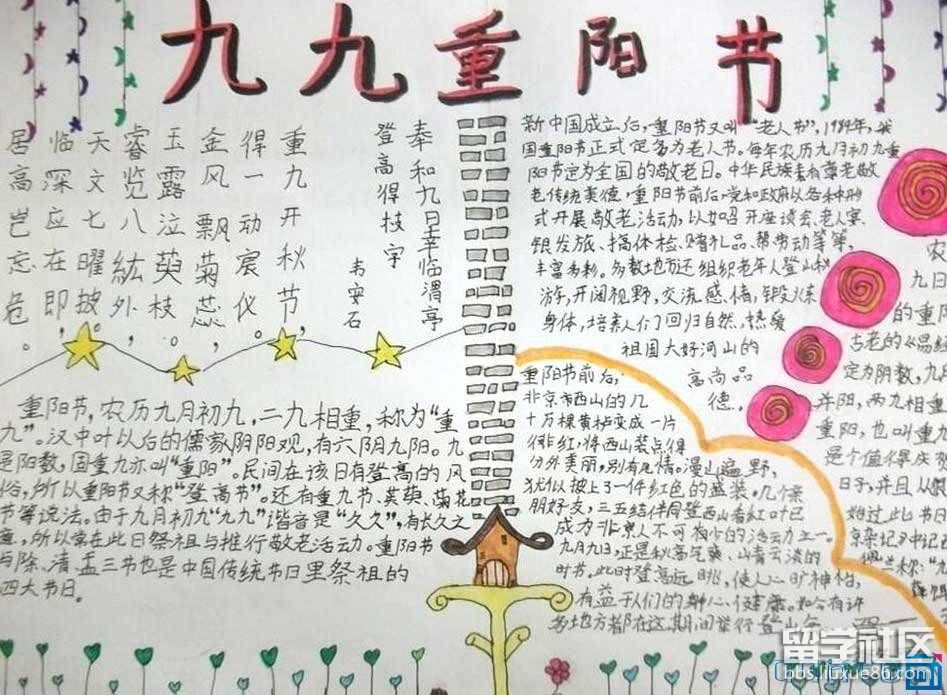 九九重阳节
奉和九日幸临渭亭
登高得枝字
韦安石
重九开秋节，
得一动宸仪。
金风飘菊蕊，
玉露泣萸枝。
睿览八紘外，
天文七曜披。
临深应在即，
居高岂忘危。
重阳节，农历九月初九，二九相重，称为“重
九”。汉中叶以后的儒家阴阳观，有六阴九阳。九
是阳数，固重九亦叫“重阳”。民间在该日有登高的风
俗，所以重阳节又称“登高节”。还有重九节、茱萸、菊花
节等说法。由于九月初九“九九”谐音是“久久”，有长久之
意，所以常在此日祭祖与推行敬老活动。重阳节
与除、清、盂三节也是中国传统节日里祭祖的
四大节日。
新中国成立后，重阳节又叫“老人节”，1989年，我
国重阳节正式定名为老人节。每年农历九月初九重
阳节定为全国的敬老日。中华民族素有尊老敬
老传统美德，重阳节前后，党和政府以各种形
式开展敬老活动，以如召开座谈会、老人宴、
银发旅、搞体检、赠礼品、帮劳动等等，
丰富多彩。多数地方还组织老年人登山秋
游，开阔视野，交流感情，锻炼
身体，培养人们回归自然、热爱
祖国大好河山的
高尚品
德。
重阳节前后，
非京市西山的几
十万棵黄栌变成一片
绯红，将西山装点得
分外美丽，别有风情。漫山遍野，
犹似披上了一件红色的盛装。几个亲
朋好友，三五结伴同登西山看红叶已
成为北京人不可相少的活动之一。
九月九日，正是秋高气爽，山青云淡的
时节。此时登高远眺，使人心旷神怡，
有益于人们的身心健康。如今有许
多地方都在这期间举行登山
农
九日
的重阳
古老的《易经
定为阴数，九
并阳，两九相重
重阳，也叫重
是个值得庆
日子，并且从
始过此节日
京杂记》中记
留学社区
bbs.liuxue86.com